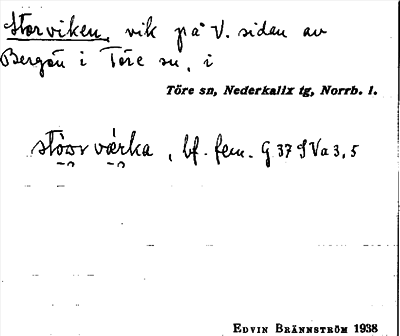 Storviken, vik på V. sidan av
Bergön i Töre sn, i
Töre sn, Nederkalix tg, Norrb. l.
stòor vǽrka, bf. fem. G 37 I Va 3, 5
EDVIN BRÄNNSTRÖM 1938